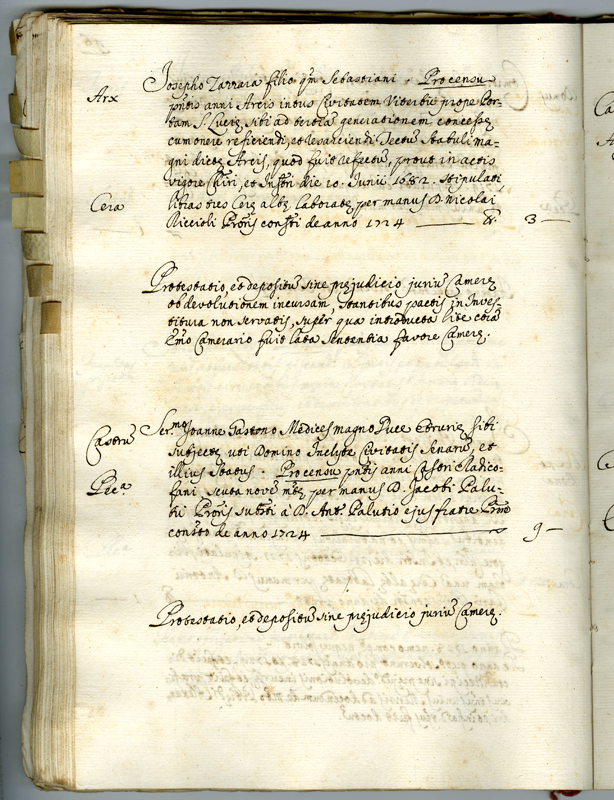 Arx
Josepho Zazzara filio qm Sebastiani. Pro censu
pntis anni Arcis intus Civitatem Viterbii prope Por-
tam S. Luciæ siti ad tertia generationem concessæ
cum onere reficiendi, et resarciendi Tectu Stabuli ma-
gni dictæ Arcis, quod fuit refectu, prout in actis
die 10. Junii 1682. Stipulati
Cera
libras tres Ceræ albæ laboratæ, per manus D. Nicolai
Riccioli Proris constti de anno 1724 — &. 3 —
Protestatio, et depositu sine præjudicio juriu Cameræ
ob devolutionem incursam stantibus pactis in Inves-
titura non servatis, super qua introducta lite cora
Emo Camerario fuit lata Sententia favore Cameræ.
Castru
Ser.mo Joanne Gastono Medices magno Duce Etruriæ, sibi
subjectæ uti Domino Inclytæ Civitatis Senaru, et
illius Status. Pro censu pntis anni Castri Radico-
Pec.a
fani scuta novu mtæ per manus D. Jacobi Palu-
tii Proris substti à D. Ant. Palutio ejus fratre Prno
constto de anno 1724 — 9 —
Protestatio, et depositu sine præjudicio juriu Cameræ.